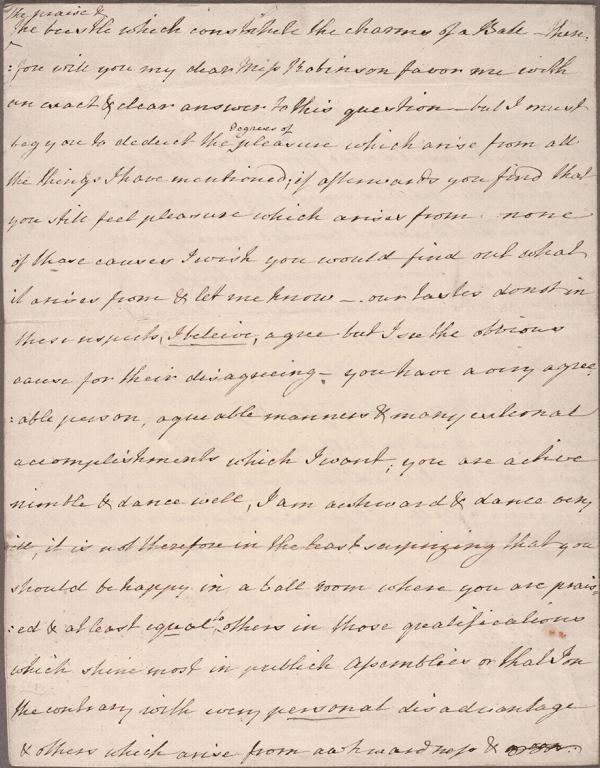 The praise &
the bustle which constitute the charms of a Ball – There:
:fore will you my dear Miss Robinson favor me with
an exact & clear answer to this question – but I must
beg you to deduct the Degrees of pleasure which arise from all
the things I have mentioned; if afterwards you find that
you still feel pleasure which arises from none
of those causes I wish you would find out what
it arises from & let me know – our tastes do not in
these respects, I beleive, agree but I see the obvious
cause for their disagreeing – you have a very agree:
:able person, agreeable manners & many external
accomplishments which I want; you are active
nimble & dance well, I am awkward & dance very
ill, it is not therefore in the least surprizing that you
should be happy in a ball room where you are prais:
:ed & at least equal to others in those qualifications
which shine most in publick Assemblies or that I on
the contrary with every personal disadvantage
& others which arise from awkwardness &